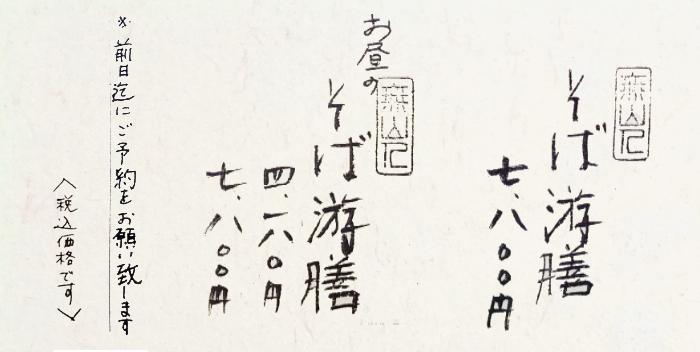 無山凡
そば游膳
七、八〇〇円
お昼の
無山凡
そば游膳
四、六〇〇円
七、八〇〇円
※前日迄にご予約をお願い致します
〈税込価格です〉